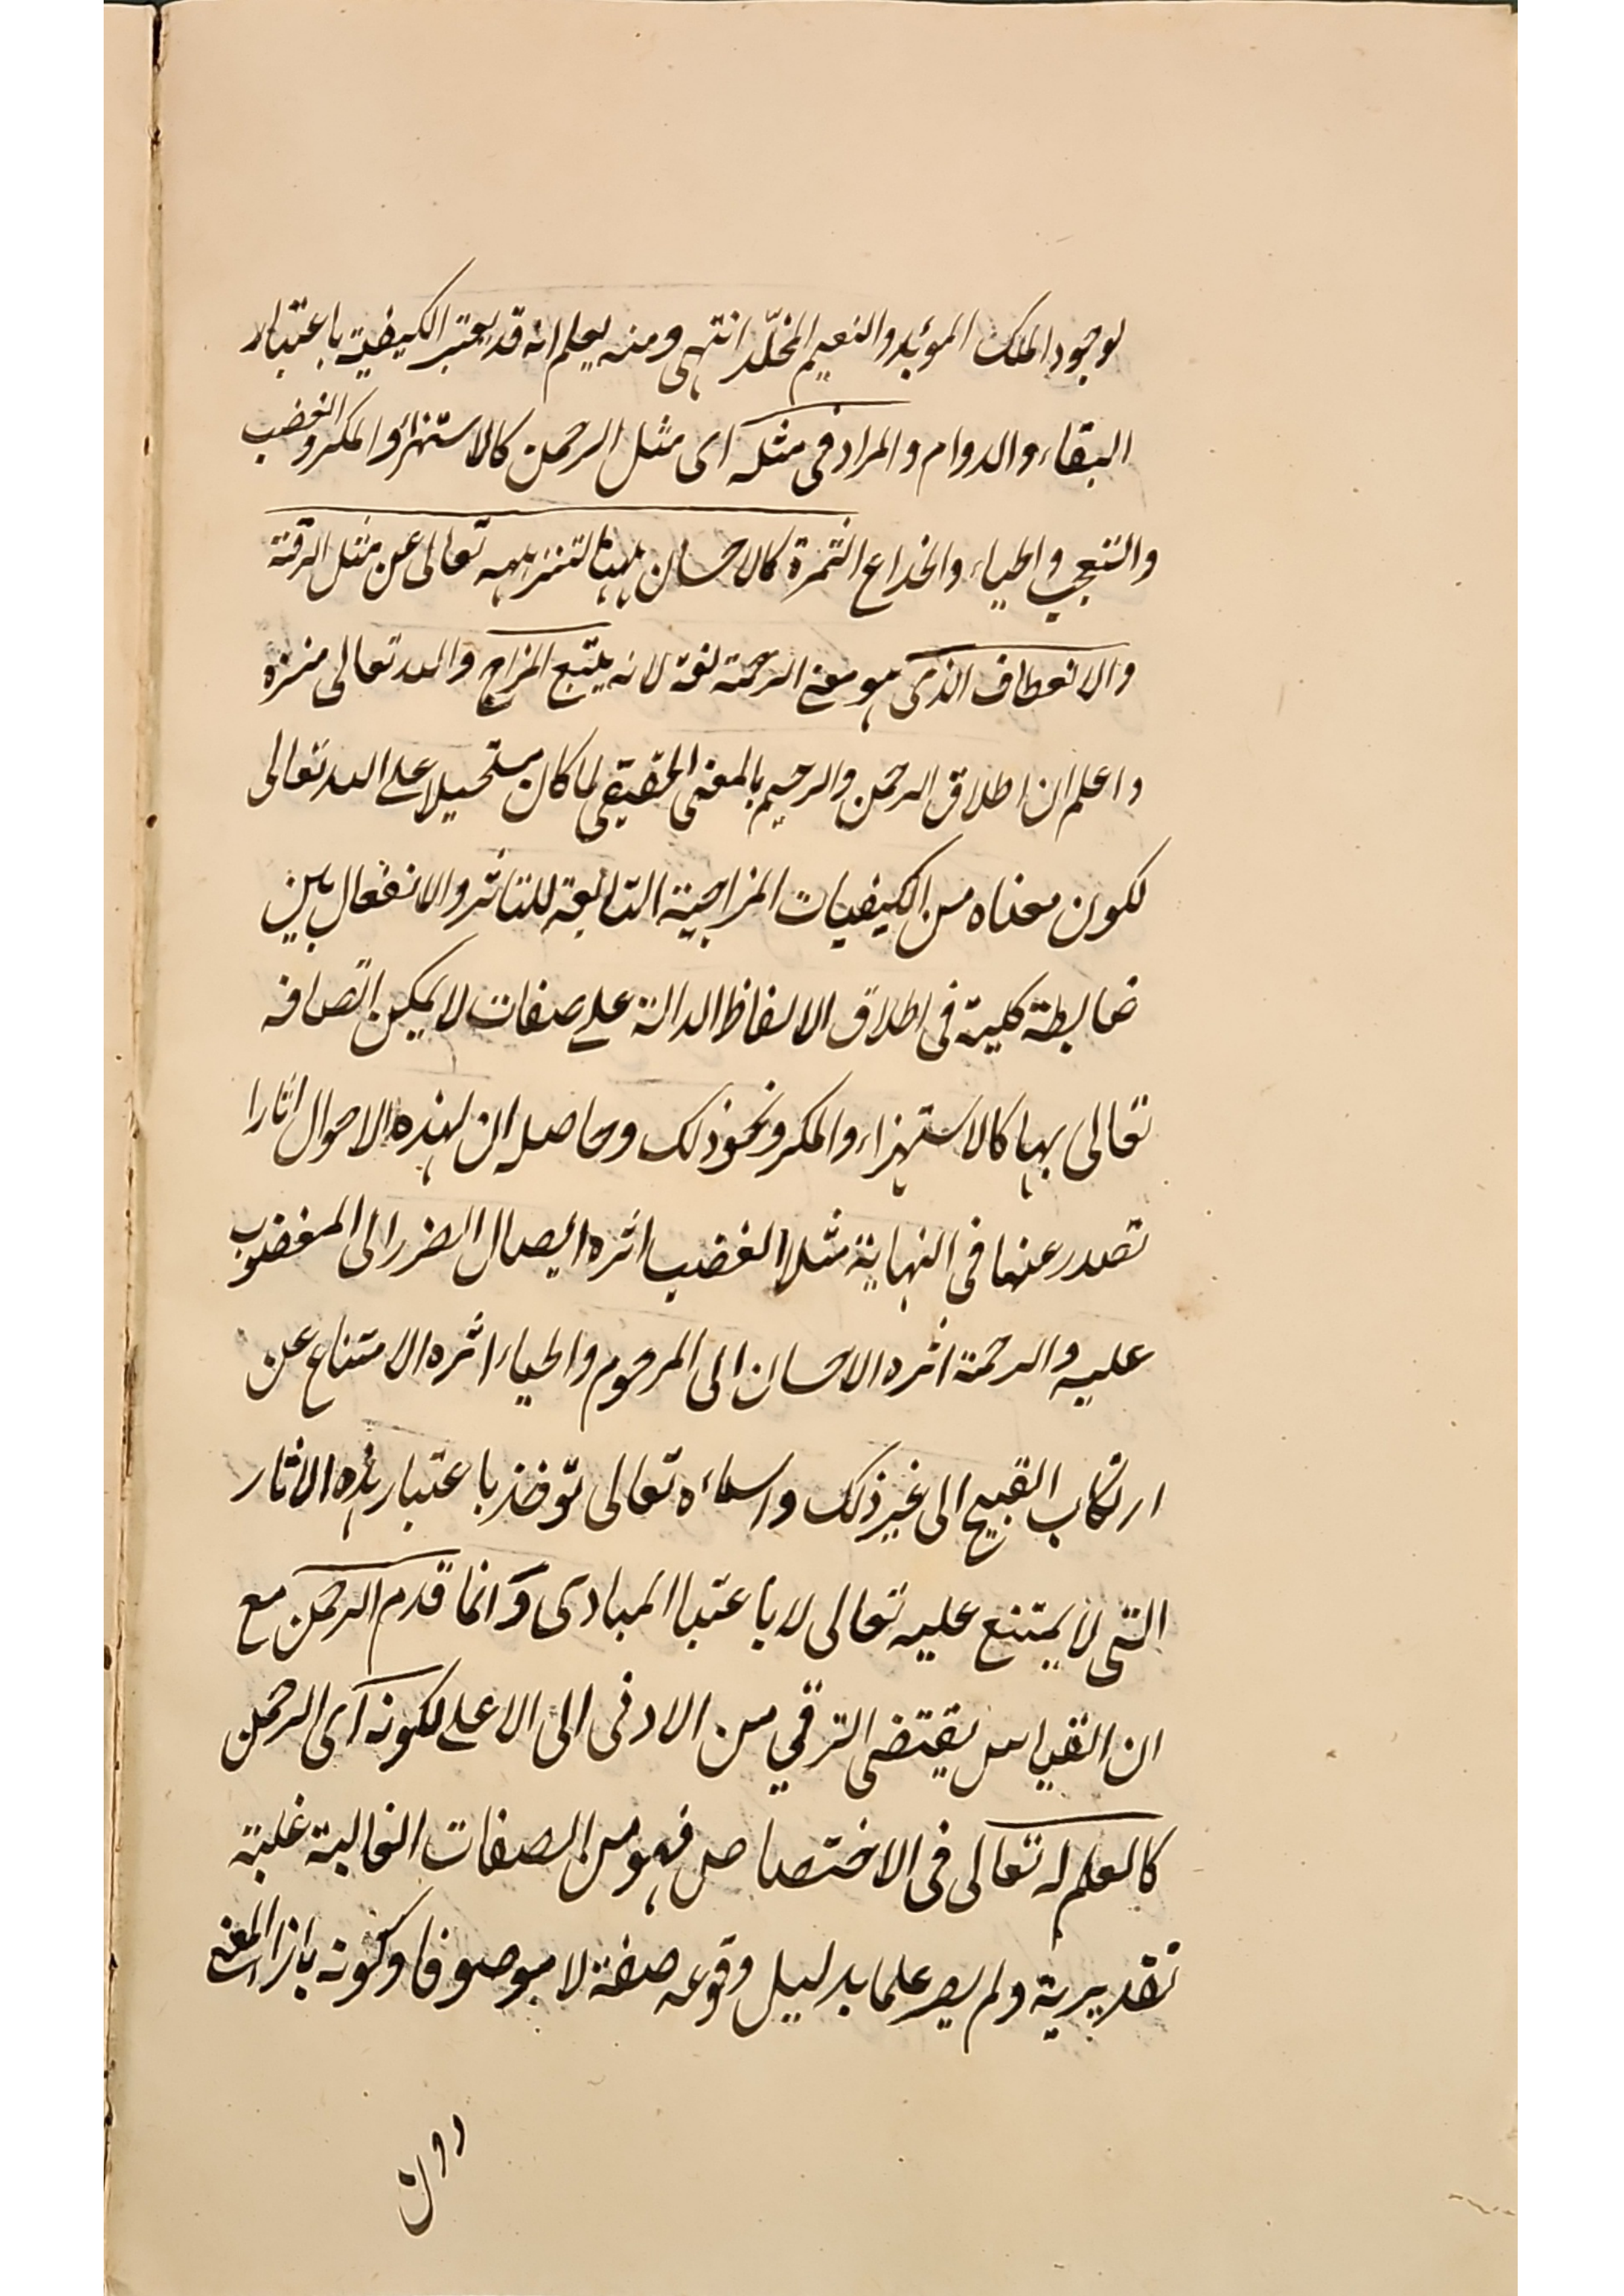 لوجود الملك المؤبد والنعيم المخلّد انتهى ومنه يعلم انه قد يعتبر الكيفية باعتبار
البقاء والدوام والمراد فى مثله اى مثل الرحمن كالاستهزاء والمكر والغضب
والتعجب والحياء والخداع الثمرة كالاحسان ههنا لتنزيهه تعالى عن مثل الرقة
والانعطاف الذى هو معنى الرحمة لغة لانه يتبع المزاج والله تعالى منزه
واعلم ان اطلاق الرحمن والرحيم بالمعنى الحقيقى لما كان مستحيلا على الله تعالى
لكون معناه من الكيفيات المزاجية التابعة للتاثر والانفعال بين
ضابطة كلية فى اطلاق الالفاظ الدالة على صفات لا يمكن اتصافه
تعالى بها كالاستهزاء والمكر ونحو ذلك وحاصله ان لهذه الاحوال اثارا
تصدر عنها فى النهاية مثلا الغضب اثره ايصال الضرر الى المغضوب
عليه والرحمة اثره الاحسان الى المرحوم والحياء اثره الامتناع عن
ارتكاب القبيح الى غير ذلك واسماءه تعالى توخذ باعتبار هذه الاثار
التى لا يمتنع عليه تعالى لا باعتبا المبادى وانما قدم الرحمن مع
ان القياس يقتضى الترقي من الادنى الى الاعلى لكونه اى الرحمن
كالعلم له تعالى فى الاختصاص فهو من الصفات الغالبة غلبة
تقديرية ولم يصر علما بدليل وقوعه صفة لا موصوفا وكونه بازاء المعنى
دون